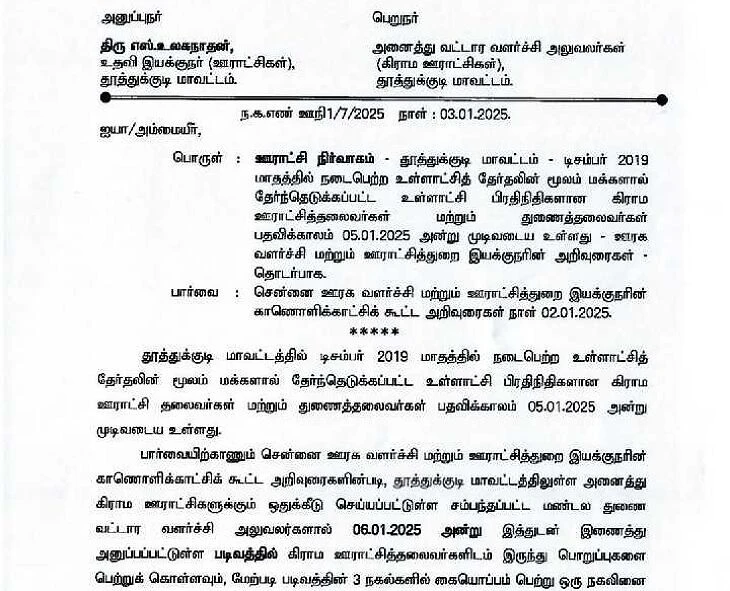 அனுப்புநர்
திரு எஸ்.உலகநாதன்,
உதவி இயக்குநர் (ஊராட்சிகள்),
தூத்துக்குடி மாவட்டம்.
பெறுநர்
அனைத்து வட்டார வளர்ச்சி அலுவலர்கள்
(கிராம ஊராட்சிகள்),
தூத்துக்குடி மாவட்டம்.
ந.க.எண் ஊநி1/7/2025 நாள் : 03.01.2025.
ஐயா/அம்மையீர்,
பொருள் : ஊராட்சி நிர்வாகம் - தூத்துக்குடி மாவட்டம் - டிசம்பர் 2019
மாதத்தில் நடைபெற்ற உள்ளாட்சித் தேர்தலின் மூலம் மக்களால்
தேர்ந்தெடுக்கப்பட்ட உள்ளாட்சி பிரதிநிதிகளான கிராம
ஊராட்சித்தலைவர்கள் மற்றும் துணைத்தலைவர்கள்
பதவிக்காலம் 05.01.2025 அன்று முடிவடைய உள்ளது - ஊரக
வளர்ச்சி மற்றும் ஊராட்சித்துறை இயக்குநரின் அறிவுரைகள் -
தொடர்பாக.
பார்வை : சென்னை ஊரக வளர்ச்சி மற்றும் ஊராட்சித்துறை இயக்குநரின்
காணொளிக்காட்சிக் கூட்ட அறிவுரைகள் நாள் 02.01.2025.
*****
தூத்துக்குடி மாவட்டத்தில் டிசம்பர் 2019 மாதத்தில் நடைபெற்ற உள்ளாட்சித்
தேர்தலின் மூலம் மக்களால் தேர்ந்தெடுக்கப்பட்ட உள்ளாட்சி பிரதிநிதிகளான கிராம
ஊராட்சி தலைவர்கள் மற்றும் துணைத்தலைவர்கள் பதவிக்காலம் 05.01.2025 அன்று
முடிவடைய உள்ளது.
பார்வையிற்காணும் சென்னை ஊரக வளர்ச்சி மற்றும் ஊராட்சித்துறை இயக்குநரின்
காணொளிக்காட்சிக் கூட்ட அறிவுரைகளின்படி, தூத்துக்குடி மாவட்டத்திலுள்ள அனைத்து
கிராம ஊராட்சிகளுக்கும் ஒதுக்கீடு செய்யப்பட்டுள்ள சம்பந்தப்பட்ட மண்டல துணை
வட்டார வளர்ச்சி அலுவலர்களால் 06.01.2025 அன்று இத்துடன் இணைத்து
அனுப்பப்பட்டுள்ள படிவத்தில் கிராம ஊராட்சித்தலைவர்களிடம் இருந்து பொறுப்புகளை
பெற்றுக் கொள்ளவும், மேற்படி படிவத்தின் 3 நகல்களில் கையொப்பம் பெற்று ஒரு நகலினை